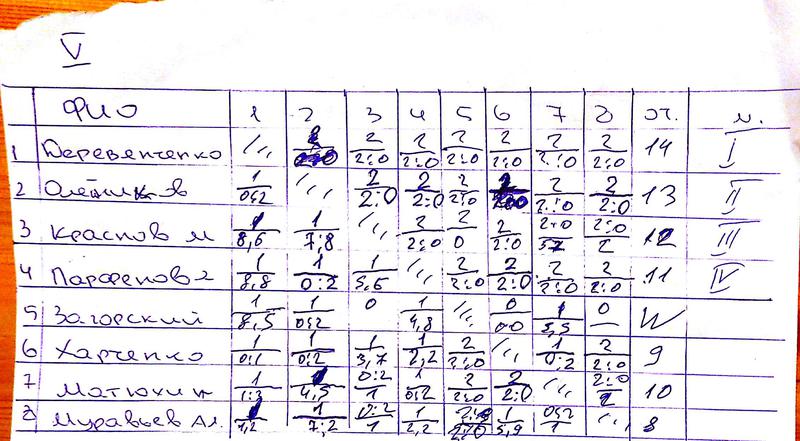 V
ФИО 1 2 3 4 5 6 7 8 оч. м.
1 Деревенченко 2 2:0 2 2:0 2 2:0 2 2:0 2 2:0 2 2:0 2 2:0 14 I
2 Олейников 1 0:2 2 2:0 2 2:0 2 2:0 2 2:0 2 2:0 2 2:0 13 II
3 Краснов М 1 8,6 1 7:8 2 2:0 2 0 2 2:0 2:0 2:0 2 12 III
4 Парфенов 1 8,8 1 0:2 1 5,6 2 2:0 2 2:0 2 2:0 2 2:0 11 IV
5 Загорский 1 8,5 1 0:2 0 1 4,8 0 0:0 1 5,5 0 —
6 Харченко 1 0:1 1 0:2 1 3,7 1 2,2 2 2:0 1 0:2 2 2:0 9
7 Матюхин 1 1:3 1 4,5 0:2 1 1 0:2 2 2:0 2 2:0 2:0 2 10
8 Муравьев Ал. 1 1,2 1 7:2 0:2 1 1 2,2 2:0 1 5,9 0:2 1 8